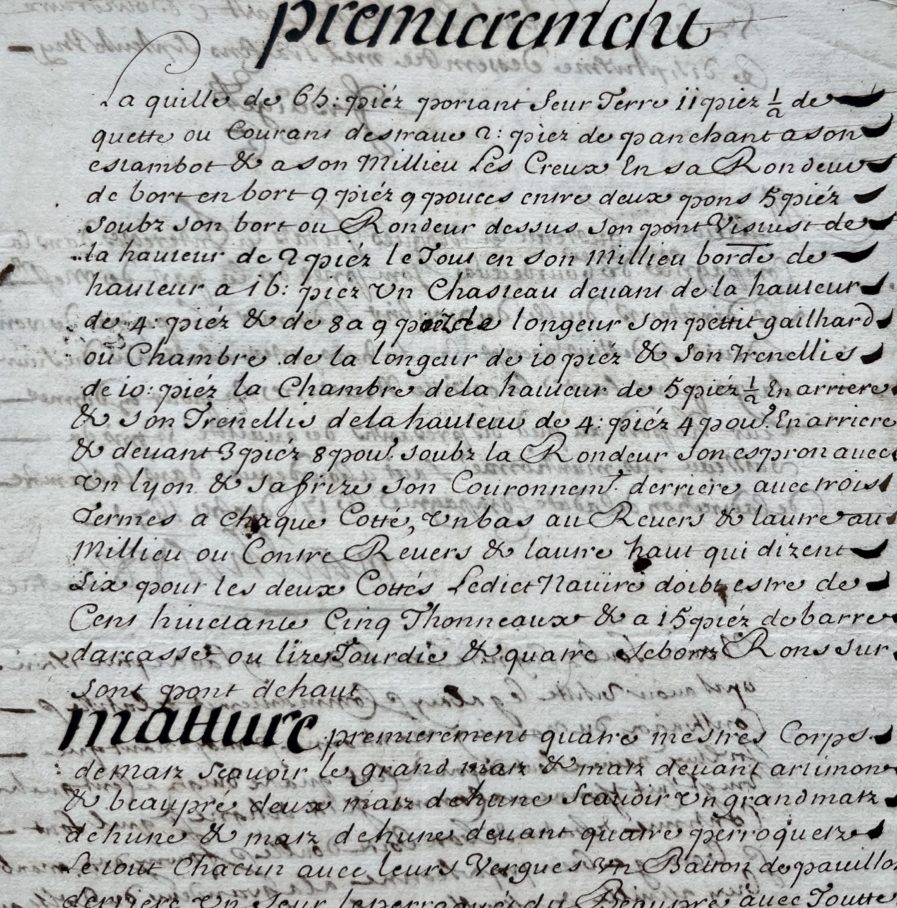 premierement
La quille de 65: piéz portant seur Terre 11 piez ½ de
quette ou Courans destraue 2: piez de panchant a son
estambot & a son Millieu Les Creux En sa Rondeur
de bort en bort 9 piéz 9 pouces entre deux pons 5 piéz
soubz son bort ou Rondeur dessus son pont de
la hauteur de 2 piéz le Tout en son Millieu bordé de
hauteur a 16: piez Un Chasteau deuant de la hauteur
de 4: piéz & de 8 a 9 piez de longeur son pettit gailhard
ou Chambre de la longeur de 10 piez & son Trenellis
de 10: piéz la Chambre de la hauteur de 5 piéz ½ En arriere
& son Trenellis de la hauteur de 4: piéz 4 pou. En arriere
& deuant 3 piéz 8 pou. soubz la Rondeur son espron auec
Un lyon & sa frize son Couronnemt. derriere auec trois
Termes a chaque Cotté, Un bas au Reuers & lautre au
Millieu ou Contre Reuers & lautre haut qui dizent
six pour les deux Cottés Ledict Nauire doibt estre de
Cens huictante Cinq Thonneaux & a 15 piéz de barre
darcasse ou lize Tourdie & quatre seborts Rons sur
sont pont de haut
matture premierement quatre mestres Corps
de matz scauoir le grand matz & matz deuant artimon
& beaupre deux matz dehune scauoir Un grand matz
dehune & matz dehune deuant quatre perroquetz
Le tout Chacun auec leurs Vergues Un Batton de pauillon
derriere Un seur le perroquet du Beaupre auec Toutte